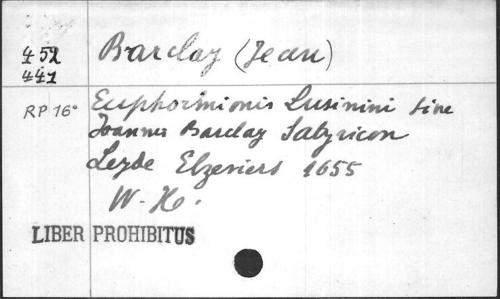 452
441
Barclay (Jean)
RP 16° Euphormionis Lusinini sive
Joannis Barclay Satyricon
Leyde Elzeviers 1655
W. H.
LIBER PROHIBITUS